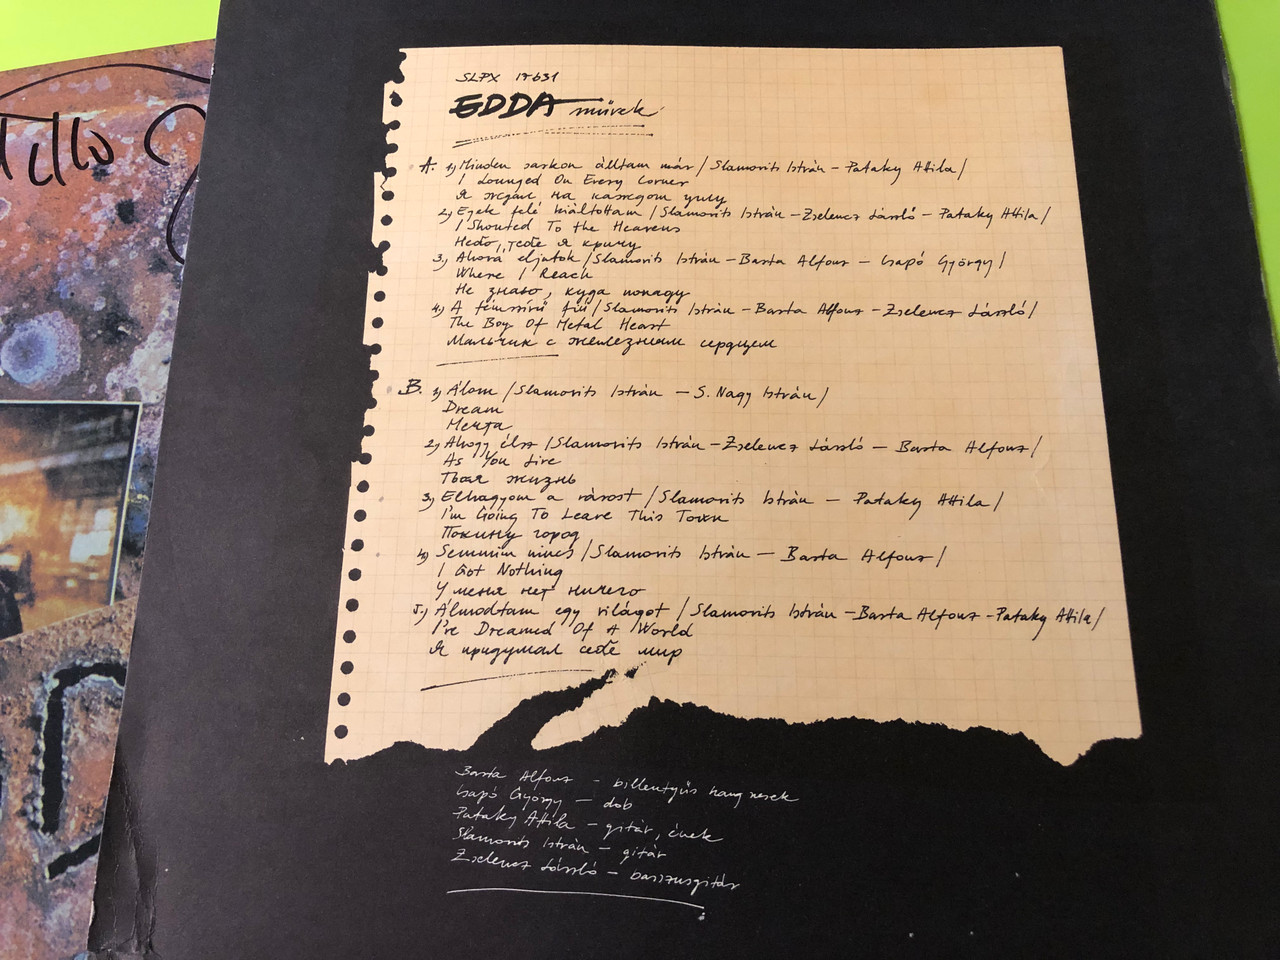 SLPX 17631
EDDA művek
A. 1) Minden sarkon álltam már / Slamovits István – Pataky Attila /
I Lounged On Every Corner
Я ждал на каждом углу
2) Egek felé kiáltottam / Slamovits István – Zselencz László – Pataky Attila /
I Shouted To the Heavens
Небо, тебе я кричу
3) Ahová eljutok / Slamovits István – Barta Alfonz – Csapó György /
Where I Reach
Не знаю, куда попаду
4) A fémszívű fiú / Slamovits István – Barta Alfonz – Zselencz László /
The Boy Of Metal Heart
Мальчик с железным сердцем
B. 1) Álom / Slamovits István – S. Nagy István /
Dream
Мечта
2) Ahogy élsz / Slamovits István – Zselencz László – Barta Alfonz /
As You Live
Твоя жизнь
3) Elhagyom a várost / Slamovits István – Pataky Attila /
I'm Going To Leave This Town
Покину город
4) Semmim nincs / Slamovits István – Barta Alfonz /
I Got Nothing
У меня нет ничего
5.) Álmodtam egy világot / Slamovits István – Barta Alfonz – Pataky Attila /
I've Dreamed Of A World
Я придумал себе мир
Barta Alfonz – billentyűs hangszerek
Csapó György – dob
Pataky Attila – gitár, ének
Slamovits István – gitár
Zselencz László – basszusgitár